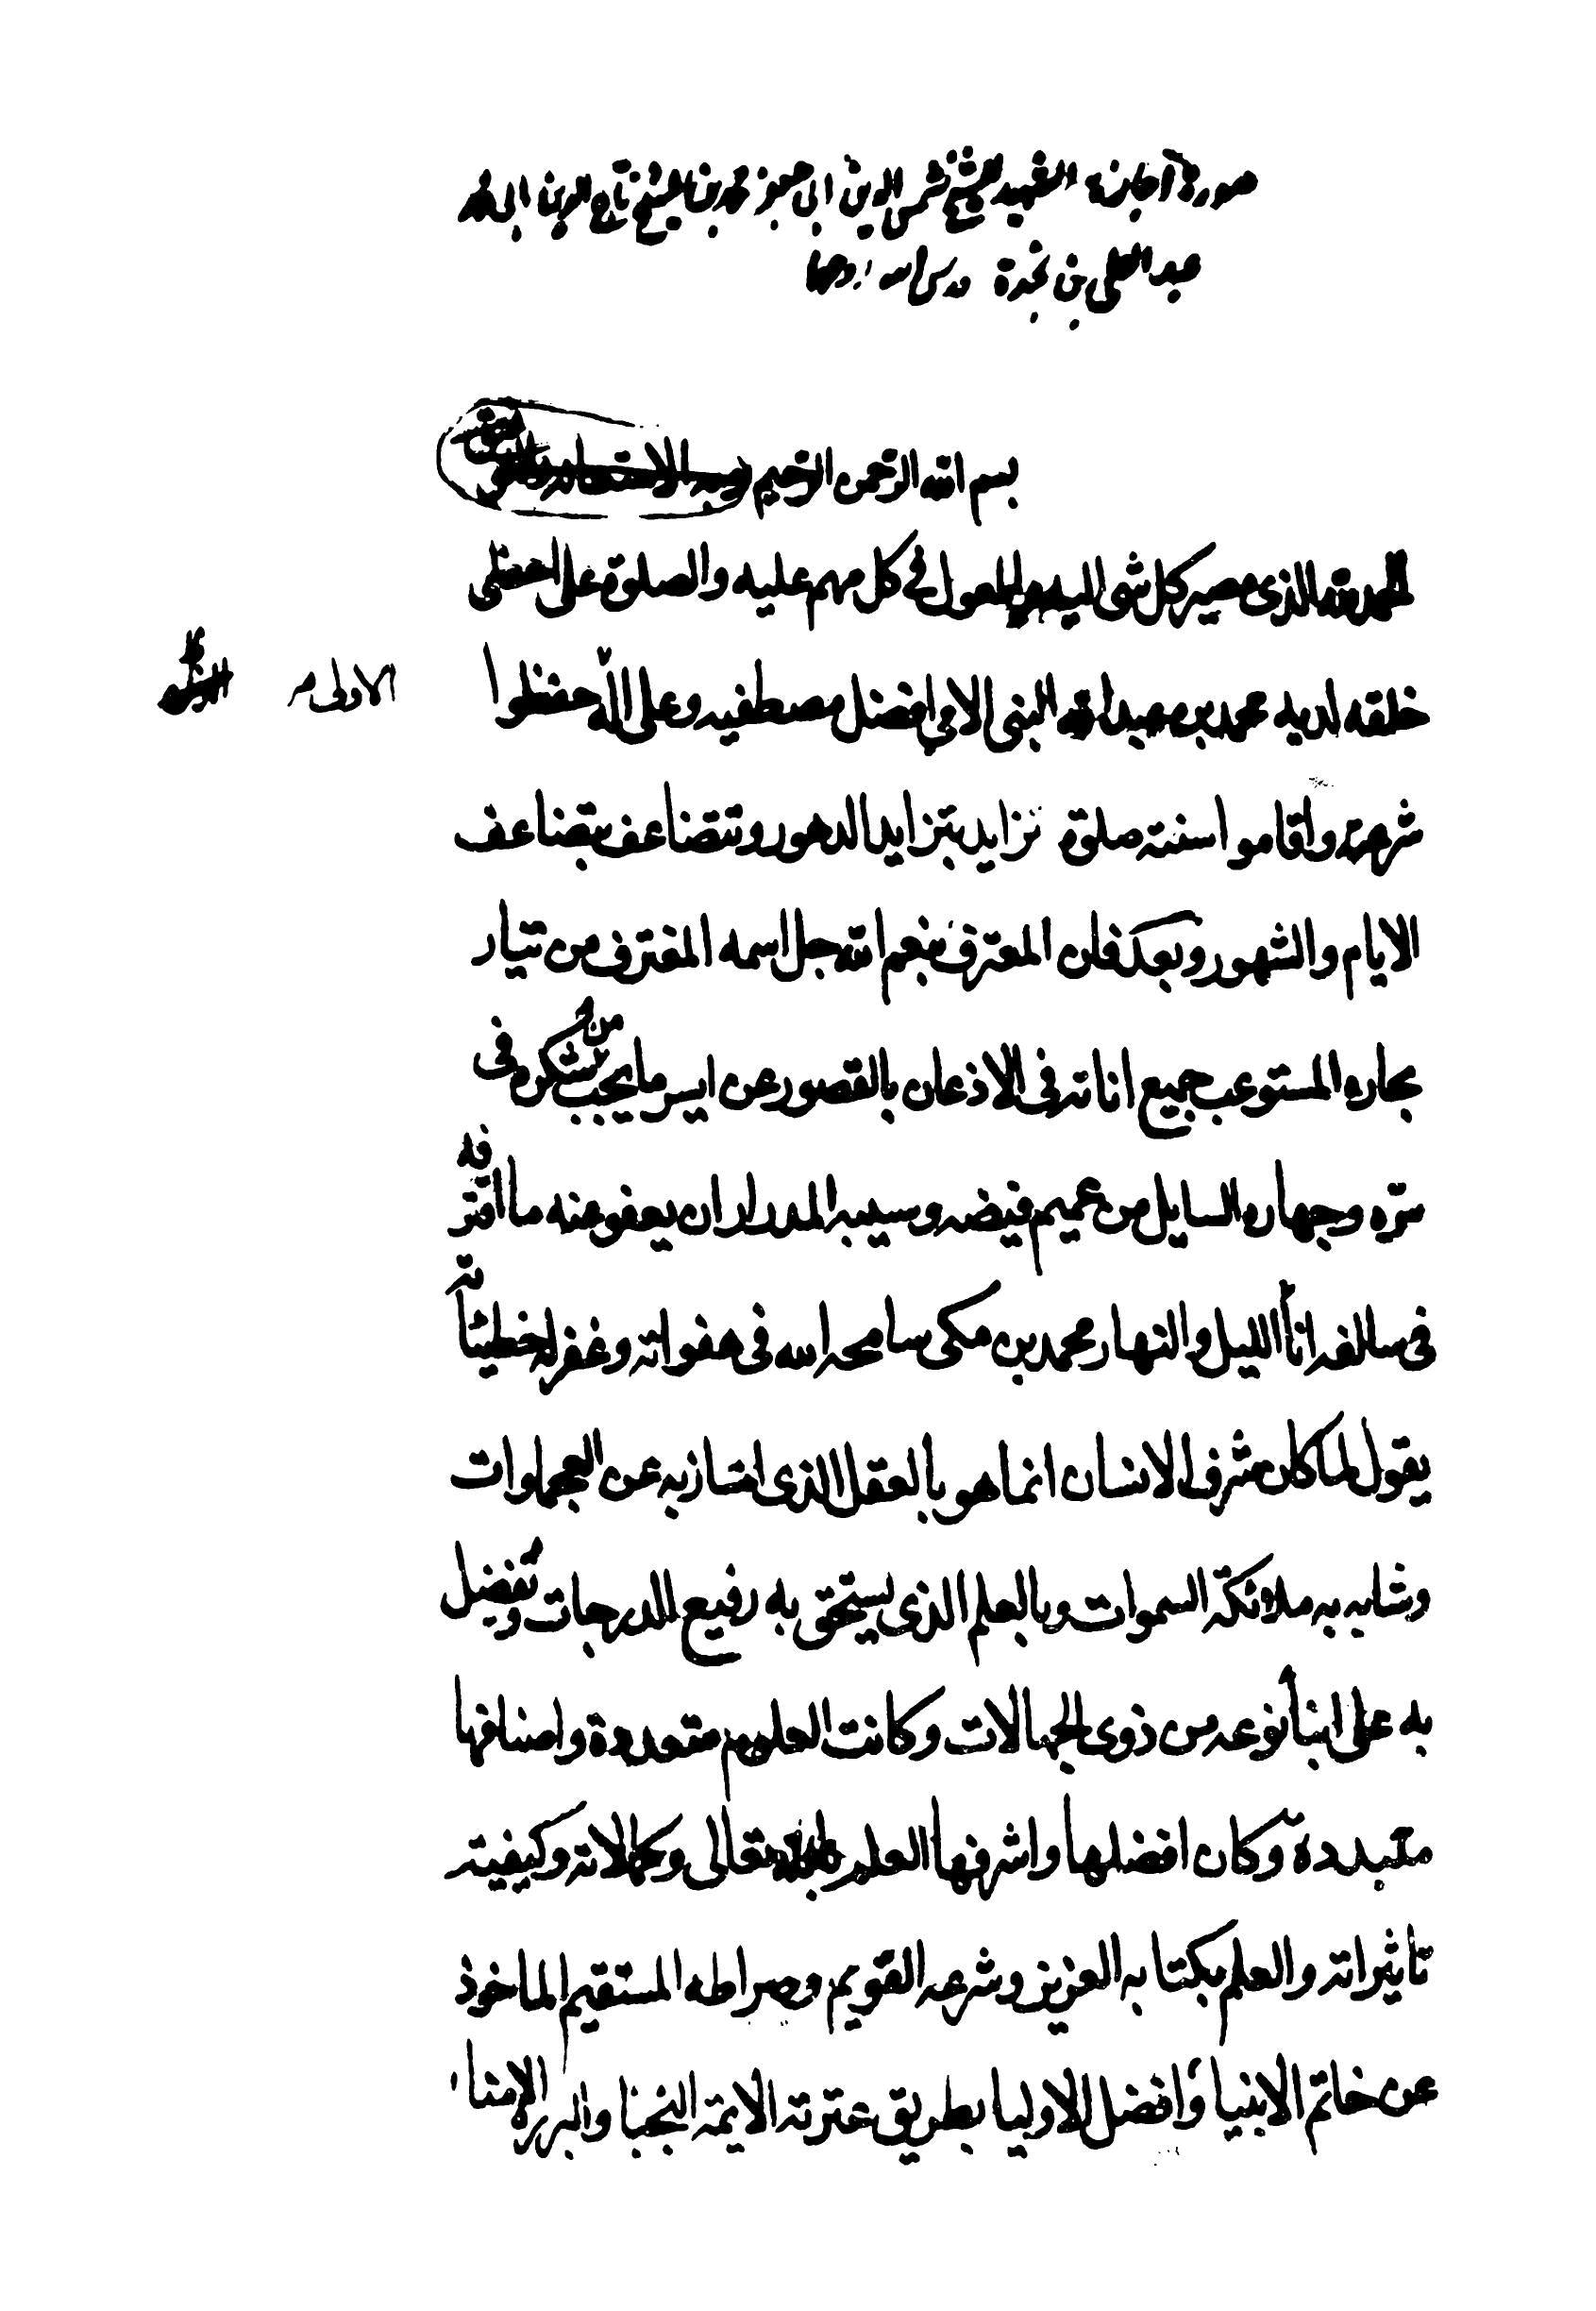 صورة اجازة الشهيد للشيخ شمس الدين ابى جعفر محمد بن الشيخ تاج الدين ابى محمد
عبد العلى بن نجدة قدس الله روحهما
بسم الله الرحمن الرحيم
الحمد لله الذى مصير كل شى اليه والمعول فى كل مهم عليه والصلوة على احظى
خلقه لديه محمد بن عبد الله النبى الامى افضل مصطفيه وعلى اله حفظوا
الاولى
شرعه واقاموا سننه صلوة تزايد بتزايد الدهور وتتضاعف بتضاعف
الايام والشهور وبعد فان المعترف بنعم الله جل اسمه المغترف من تيار
بحاره المستوعب جميع اناته فى الاذعان بالقصور عن ايسر ما يجب من شكره فى
سره وجهاره السايل من عميم فيضه وسيبه المدرار ان يعفو عنه ما اقترفه
فى سالفه انآ الليل والنهار محمد بن مكى سامحه الله فى هفواته وغفر له خطيئاته
يقول لما كان شرف الانسان انما هو بالعقل الذى امتاز به عن العجماوات
وشابه به ملائكة السموات وبالعلم الذى يستحق به رفيع الدرجات وتفضيل
به على ابنآ نوعه من ذوى الجهالات وكانت العلوم متعددة واصنافها
متبددة وكان افضلها واشرفها العلم بالله تعالى وكمالاته وكيفية
تاثيراته والعلم بكتابه العزيز وشرعه القويم وصراطه المستقيم الماخوذ
عن خاتم الانبيآ وافضل الاوليا بطريق عترته الايمة النجبا والبررة الامنا